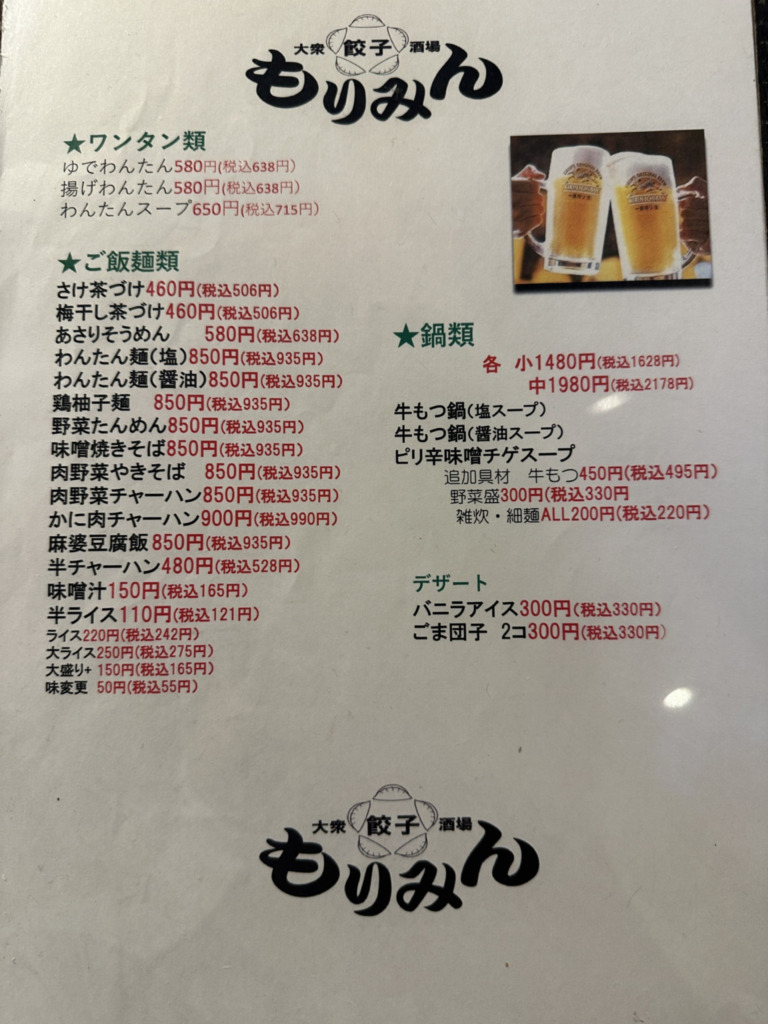 大衆 餃子 酒場
もりみん
★ワンタン類
ゆでわんたん580円(税込638円)
揚げわんたん580円(税込638円)
わんたんスープ650円(税込715円)
★ご飯麺類
さけ茶づけ460円(税込506円)
梅干し茶づけ460円(税込506円)
あさりそうめん 580円(税込638円)
わんたん麺(塩)850円(税込935円)
わんたん麺(醤油)850円(税込935円)
鶏柚子麺 850円(税込935円)
野菜たんめん850円(税込935円)
味噌焼きそば850円(税込935円)
肉野菜やきそば 850円(税込935円)
肉野菜チャーハン850円(税込935円)
かに肉チャーハン900円(税込990円)
麻婆豆腐飯850円(税込935円)
半チャーハン480円(税込528円)
味噌汁150円(税込165円)
半ライス110円(税込121円)
ライス220円(税込242円)
大ライス250円(税込275円)
大盛り+ 150円(税込165円)
味変更 50円(税込55円)
★鍋類
各 小1480円(税込1628円)
中1980円(税込2178円)
牛もつ鍋(塩スープ)
牛もつ鍋(醤油スープ)
ピリ辛味噌チゲスープ
追加具材 牛もつ450円(税込495円)
野菜盛300円(税込330円
雑炊・細麺ALL200円(税込220円)
デザート
バニラアイス300円(税込330円)
ごま団子 2コ300円(税込330円)
大衆 餃子 酒場
もりみん